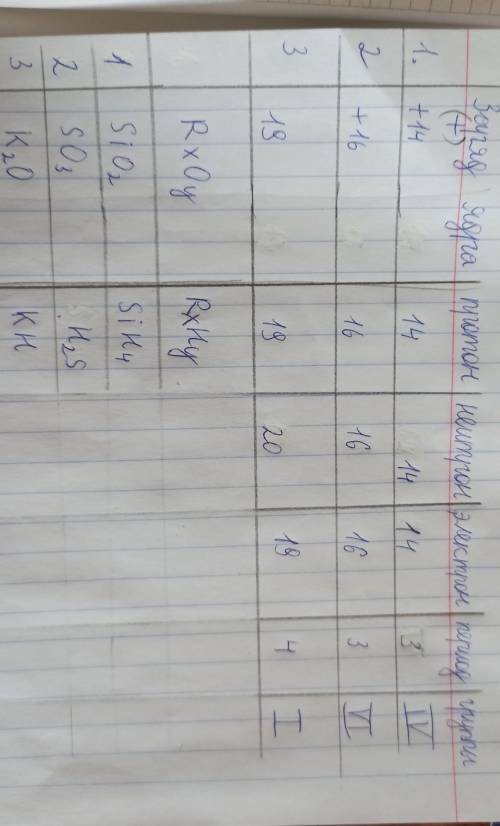 Заряд ядра (+) протон нейтрон электрон период группа
1. +14 14 14 14 3 IV
2 +16 16 16 16 3 VI
3 19 19 20 19 4 I
RxOy RxHy
1 SiO2 SiH4
2 SO3 H2S
3 K2O KH